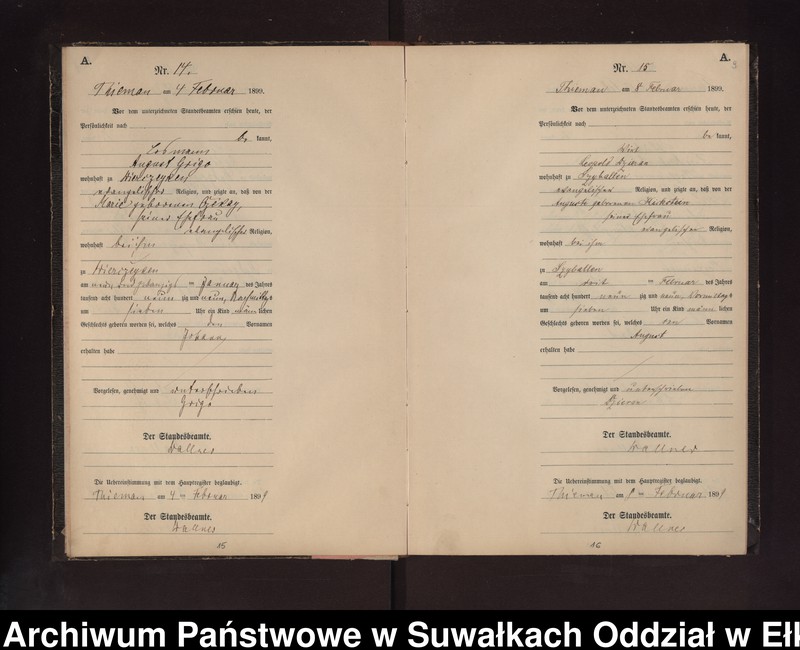 A.
Nr. 14.
Thieman am 4 Februar 1899.
Vor dem unterzeichneten Standesbeamten erschien heute, der
Persönlichkeit nach
be kannt,
Losmann
August Grigo
wohnhaft zu Wierczeyken
evangelischer Religion, und zeigte an, daß von der
Marie geborenen
seiner Ehefrau
evangelischer Religion,
wohnhaft bei ihm
zu Wierczeyken
am Januar des Jahres
tausend acht hundert neun zig und neun, Nachmittags
um sieben Uhr ein Kind männ lichen
Geschlechts geboren worden sei, welches den Vornamen
Johann
erhalten habe
Vorgelesen, genehmigt und unterschrieben
Grigo
Der Standesbeamte.
Wallner
Die Uebereinstimmung mit dem Hauptregister beglaubigt.
Thieman am 4 ten Februar 1899
Der Standesbeamte.
Wallner
15
A.
Nr. 15
Thieman am 8 Februar 1899.
Vor dem unterzeichneten Standesbeamten erschien heute, der
Persönlichkeit nach
be kannt,
Wirt
Leopold
wohnhaft zu Czyballen
evangelischer Religion, und zeigte an, daß von der
Auguste geborenen
seiner Ehefrau
evangelischer Religion,
wohnhaft bei ihm
zu Czyballen
am Februar des Jahres
tausend acht hundert neun zig und neun, Vormittags
um sieben Uhr ein Kind männ lichen
Geschlechts geboren worden sei, welches den Vornamen
August
erhalten habe
Vorgelesen, genehmigt und unterschrieben
Der Standesbeamte.
Wallner
Die Uebereinstimmung mit dem Hauptregister beglaubigt.
Thieman am 8 ten Februar 1899
Der Standesbeamte.
Wallner
16
Archiwum Państwowe w Suwałkach Oddział w Ełk